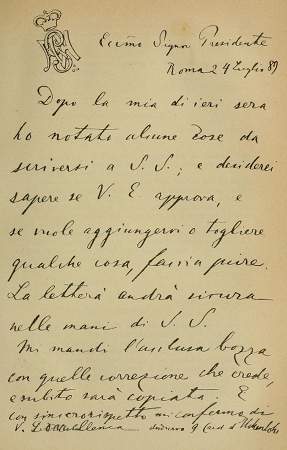 Ecc͞mo Signor Presidente
Roma 24 Luglio 89
Dopo la mia di ieri sera
ho notato alcune cose da
scriversi a S. S.; e desiderei
sapere se V. E. approva, e
se vuole aggiungervi o togliere
qualche cosa, faccia pure.
La lettera andrà sicura
nelle mani di S. S.
Mi mandi l'acclusa bozza
con quelle correzione che crede,
e subito sarà copiata. E
con sincero rispetto mi confermo di
V. Eccellenza Card. d'Hohenlohe